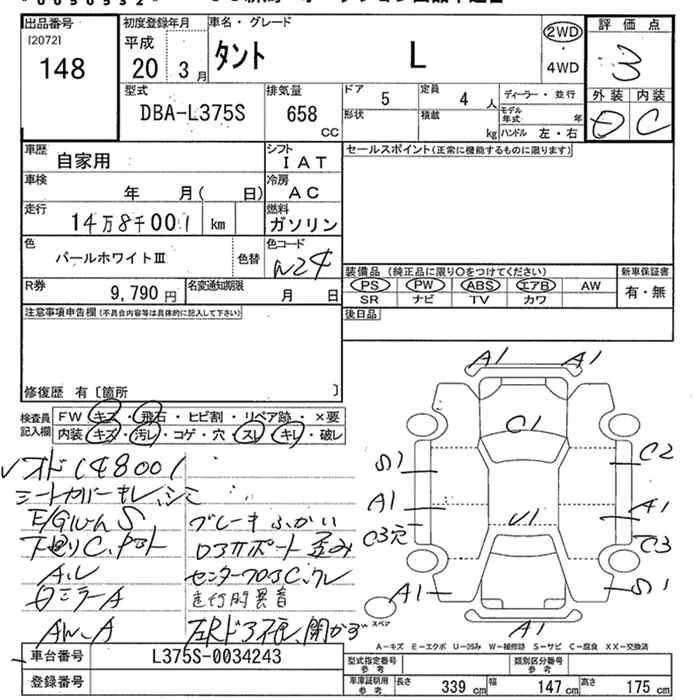 出品番号
[2072]
148
初度登録年月
平成
20 3月
車名・グレード
タント L
2WD
・
4WD
評価点
3
型式
DBA-L375S
排気量
658 CC
ドア
5
定員
4 人
ディーラー・並行
形状
積載
kg
モデル年式 年
ハンドル 左・右
外装 内装
D C
車歴
自家用
シフト
IAT
セールスポイント(正常に機能するものに限ります)
車検
年 月( 日)
冷房
AC
走行
14万8千001 km
燃料
ガソリン
色
パールホワイトⅢ
色替
色コード
W24
装備品(純正品に限り〇をつけてください)
新車保証書
PS PW ABS エアB AW
有・無
SR ナビ TV カワ
R券
9,790円
名変通知期限
月 日
後日品
注意事項申告欄(不具合内容等は具体的に記入して下さい)
修復歴 有〔箇所 〕
検査員記入欄
FW キズ・飛石・ヒビ割・リペア跡・×要
内装 キズ・汚レ・コゲ・穴・スレ・キレ・破レ
オド148001
シートカバーキレ、シミ
ブレーキふかい
下廻りC、
ロアサポート歪み
A、U
センターフロアC、クレ
ミラーA
走行時異音
AW、A
A1 A1
C1
S1 C2
A1 A1
U1
C3穴 C3
A1 S1
A1
スペア
A-キズ E-エクボ U-凹み W-補修跡 S-サビ C-腐食 XX-交換済
車台番号
L375S-0034243
登録番号
型式指定番号 参考
類別区分番号 参考
車庫証明用 参考
長さ 339 cm
幅 147 cm
高さ 175 cm